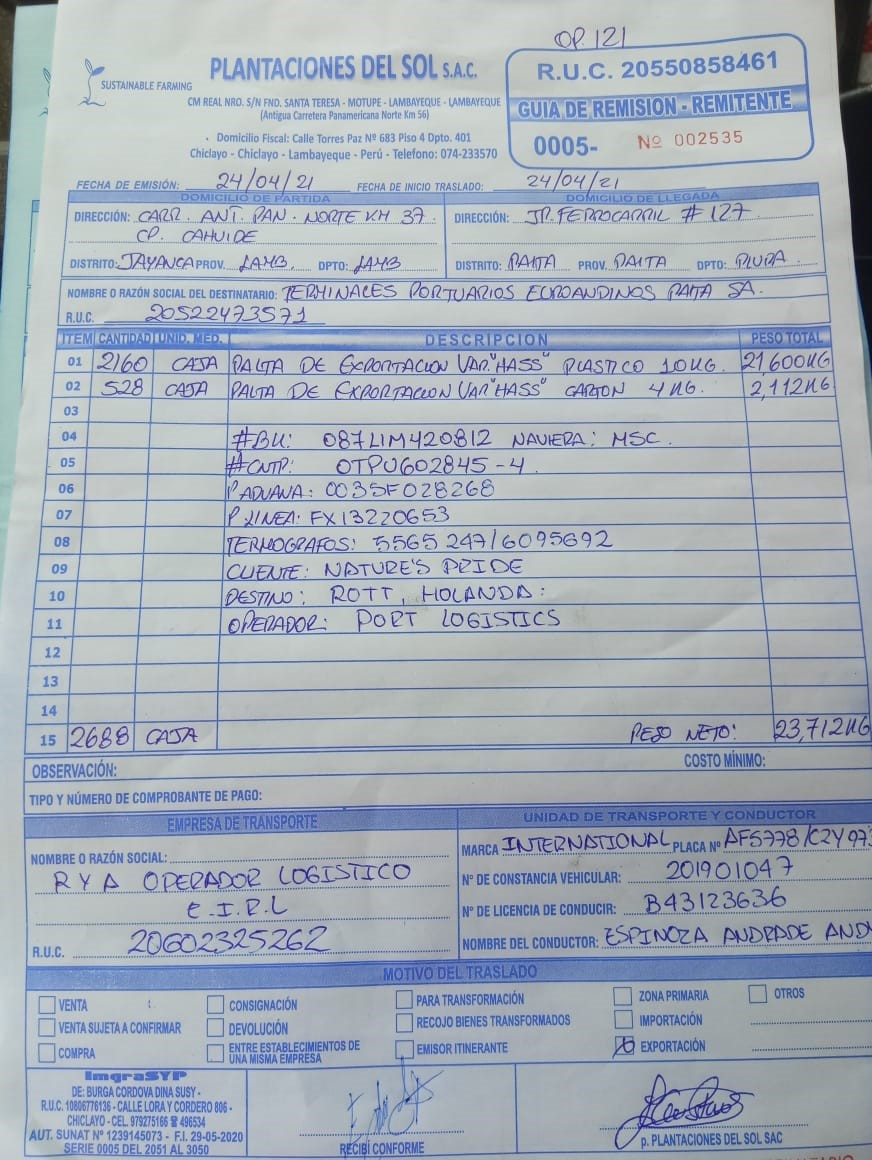 OP. 121
SUSTAINABLE FARMING
PLANTACIONES DEL SOL S.A.C.
CM REAL NRO. S/N FND. SANTA TERESA - MOTUPE - LAMBAYEQUE - LAMBAYEQUE
(Antigua Carretera Panamericana Norte Km 56)
Domicilio Fiscal: Calle Torres Paz Nº 683 Piso 4 Dpto. 401
Chiclayo - Chiclayo - Lambayeque - Perú - Telefono: 074-233570
R.U.C. 20550858461
GUIA DE REMISION - REMITENTE
0005- Nº 002535
FECHA DE EMISIÓN: 24/04/21 FECHA DE INICIO TRASLADO: 24/04/21
DOMICILIO DE PARTIDA DOMICILIO DE LLEGADA
DIRECCIÓN: CARR. ANT. PAN. NORTE KM 37. DIRECCIÓN: JR. FERROCARRIL # 127
CP. CAHUIDE
DISTRITO: JAYANCA PROV. LAMB. DPTO: LAMB DISTRITO: PAITA PROV. PAITA DPTO: PIURA.
NOMBRE O RAZÓN SOCIAL DEL DESTINATARIO: TERMINALES PORTUARIOS EUROANDINOS PAITA SA.
R.U.C. 20522473571
ITEM CANTIDAD UNID. MED. DESCRIPCION PESO TOTAL
01 2160 CAJA PALTA DE EXPORTACION VAR."HASS" PLASTICO 10KG. 21,600KG
02 528 CAJA PALTA DE EXPORTACION VAR."HASS" CARTON 4KG. 2,112KG
03
04 #BK: 087LIM420812 NAVIERA: MSC.
05 #CNTR: OTPU602845-4.
06 P ADUANA: 0035F028268
07 P LINEA: FX13220653
08 TERMOGRAFOS: 5565247/6095692
09 CLIENTE: NATURE'S PRIDE
10 DESTINO: ROTT, HOLANDA:
11 OPERADOR: PORT LOGISTICS
12
13
14
15 2688 CAJA PESO NETO: 23,712KG
OBSERVACIÓN: COSTO MÍNIMO:
TIPO Y NÚMERO DE COMPROBANTE DE PAGO:
EMPRESA DE TRANSPORTE UNIDAD DE TRANSPORTE Y CONDUCTOR
NOMBRE O RAZÓN SOCIAL:
R Y A OPERADOR LOGISTICO
E.I.R.L
R.U.C. 20602325262
MARCA INTERNATIONAL PLACA Nº AF5778/C2Y 973
Nº DE CONSTANCIA VEHICULAR: 201901047
Nº DE LICENCIA DE CONDUCIR: B43123636
NOMBRE DEL CONDUCTOR: ESPINOZA ANDRADE AND
MOTIVO DEL TRASLADO
VENTA CONSIGNACIÓN PARA TRANSFORMACIÓN ZONA PRIMARIA OTROS
VENTA SUJETA A CONFIRMAR DEVOLUCIÓN RECOJO BIENES TRANSFORMADOS IMPORTACIÓN
COMPRA ENTRE ESTABLECIMIENTOS DE UNA MISMA EMPRESA EMISOR ITINERANTE EXPORTACIÓN
ImgraSYP
DE: BURGA CORDOVA DINA SUSY -
R.U.C. 10806776136 - CALLE LORA Y CORDERO 806 -
CHICLAYO - CEL. 979275166 ☎ 496534
AUT. SUNAT Nº 1239145073 - F.I. 29-05-2020
SERIE 0005 DEL 2051 AL 3050
RECIBÍ CONFORME
p. PLANTACIONES DEL SOL SAC